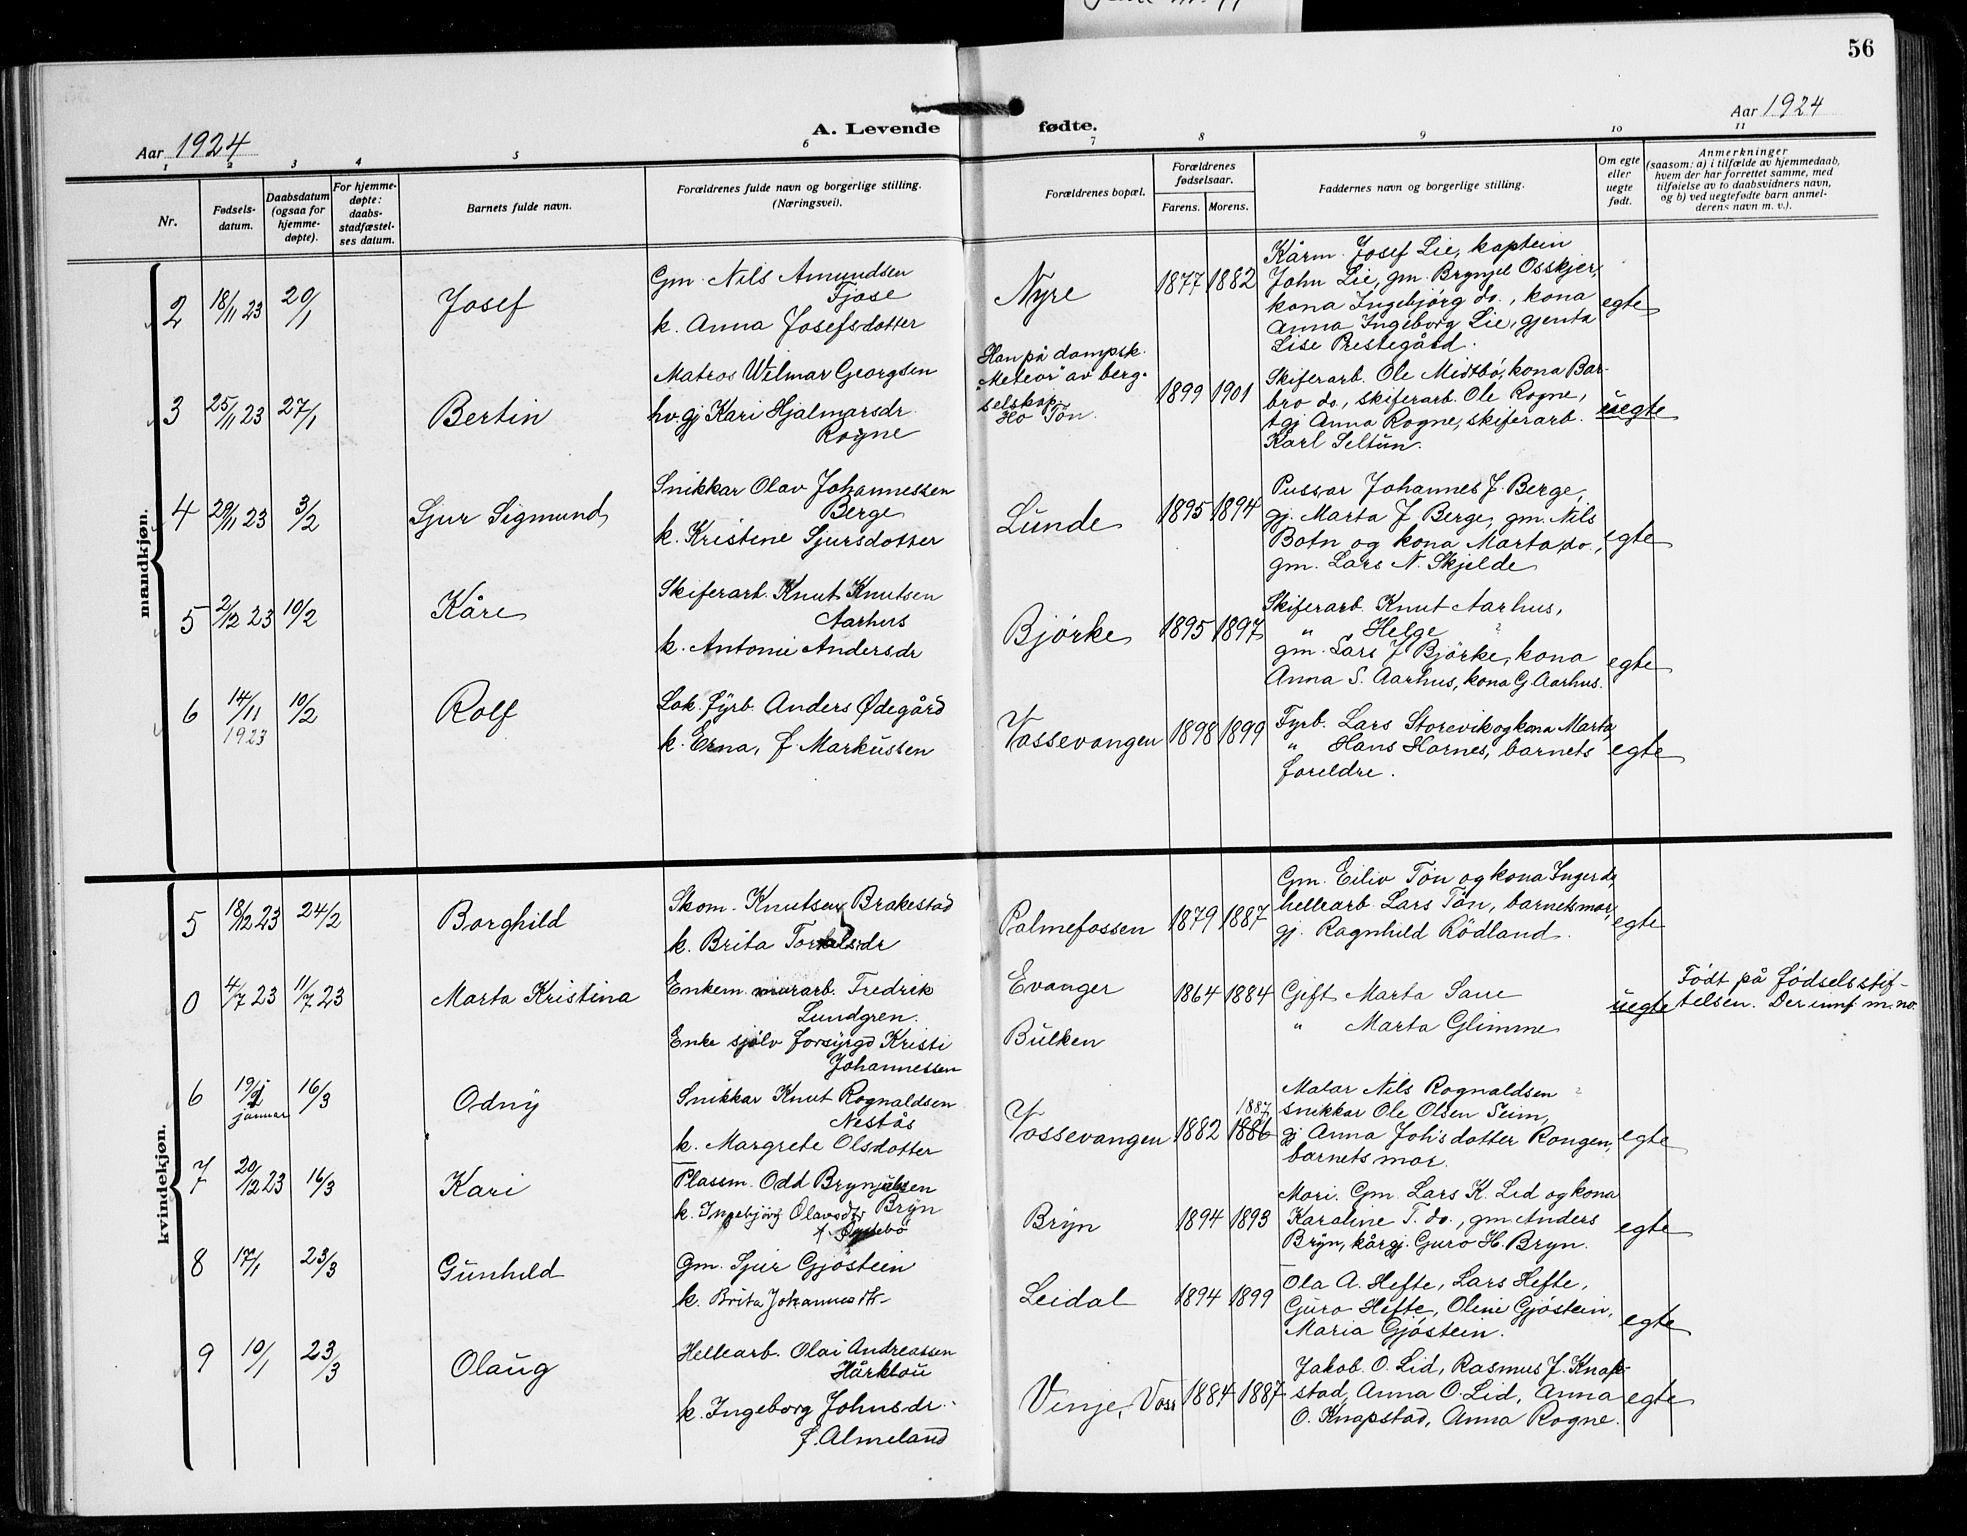 56
Aar 1924
A. Levende fødte.
Aar 1924
1 2 3 4 5 6 7 8 9 10 11
Nr.
Fødsels-
datum.
Daabsdatum
(ogsaa for
hjemme-
døpte).
For hjemme-
døpte:
daabs-
stadfæstel-
ses datum.
Barnets fulde navn.
Forældrenes fulde navn og borgerlige stilling.
(Næringsvei).
Forældrenes bopæl.
Forældrenes
fødselsaar.
Farens. Morens.
Faddernes navn og borgerlige stilling.
Om egte
eller
uegte
født.
Anmerkninger
(saasom: a) i tilfælde av hjemmedaab,
hvem der har forrettet samme, med
tilføielse av to daabsvidners navn,
og b) ved uegtefødte barn anmel-
derens navn m. v.).
mandkjøn.
2 18/11 23 20/1 Josef
Gm. Nils Amundsen
Fjose
k. Anna Josefsdotter
Nyre 1877 1882
Kårm. Josef Lie, kaptein
John Lie, gm. Brynjel Osskjer,
kona Ingebjörg do., kona
Anna Ingeborg Lie, gjenta
Lise Prestegård.
egte
3 25/11 23 27/1 Bertin
Matros Wilmar Georgsen
hv. gj Kari Hjalmarsdr.
Rogne
Han på dampsk.
"Meteor" av berg.
selskap
Ho Tön.
1899 1901
Skiferarb. Ole Midtbö, kona Bar-
bro do., skiferarb. Ole Rogne,
tgj Anna Rogne, skiferarb.
Karl Seltun.
uegte
4 29/11 23 3/2 Sjur Sigmund
Snikkar Olav Johannessen
Berge
k. Kristine Sjursdotter
Lunde 1895 1894
Pussar Johannes J. Berge,
gj. Marta J Berge, gm. Nils
Botn og kona Marta do.,
gm. Lars N. Skjelde
egte
5 2/12 23 10/2 Kåre
Skiferarb. Knut Knutsen
Aarhus
k. Antonie Andersdr
Bjørke 1895 1897
Skiferarb. Knut Aarhus,
" Helge "
gm. Lars J Bjørke, kona
Anna S. Aarhus, kona G. Aarhus.
egte
6 14/11 1923 10/2 Rolf
Lok. fyrb. Anders Ødegård
k. Erna, f. Markussen
Vossevangen 1898 1899
Fyrb. Lars Storevik og kona Marta,
" Hans Hornes, barnets
foreldre.
egte
kvindekjøn.
5 18/12 23 24/2 Borghild
Skom. Knutsen Brakestad
k. Brita
Palmefossen 1879 1887
Gm. Eiliv Tön og kona Inger do,
hellearb. Lars Tön, barnets mor,
gj. Ragnhild Rödland.
egte
0 4/7 23 11/7 23 Marta Kristina
Enkem. murarb. Fredrik
Lundgren.
Enke sjølv forsyrgd Kristi
Johannessen
Evanger
Bulken
1864 1884
Gift Marta Saue
" Marta Glimme
uegte
Födt på födselsstif-
telsen. Der innf. m. no.
6 19/1 januar 16/3 Odny
Snikkar Knut Rognaldsen
Nestås
k. Margrete Olsdotter
Vossevangen 1882 1886 1887
Malar Nils Rognaldsen
snikkar Ole Olsen Seim,
gj Anna Johsdotter Rongen,
barnets mor.
egte
7 20/12 23 16/3 Kari
Plassm. Odd Brynjulsen
Bryn
k. Ingebjörg Olavsdtr
f. Øystebö
Bryn 1894 1893
Mori. Gm. Lars K. Lid og kona
Karoline T. do., gm. Anders
Bryn, kårgj. Guro H. Bryn.
egte
8 17/1 23/3 Gunhild
Gm. Sjur Gjöstein
k. Brita Johannesdtr
Leidal 1894 1899
Ola A. Hefte, Lars Hefte,
Guro Hefte, Oline Gjöstein,
Maria Gjöstein.
egte
9 10/1 23/3 Olaug
Hellearb. Olai Andreassen
Hårklou
k. Ingeborg Johnsdr.
f. Almeland
Vinje, Voss 1884 1887
Jakob O. Lid, Rasmus J. Knap-
stad, Anna O. Lid, Anna
O. Knapstad, Anna Rogne.
egte